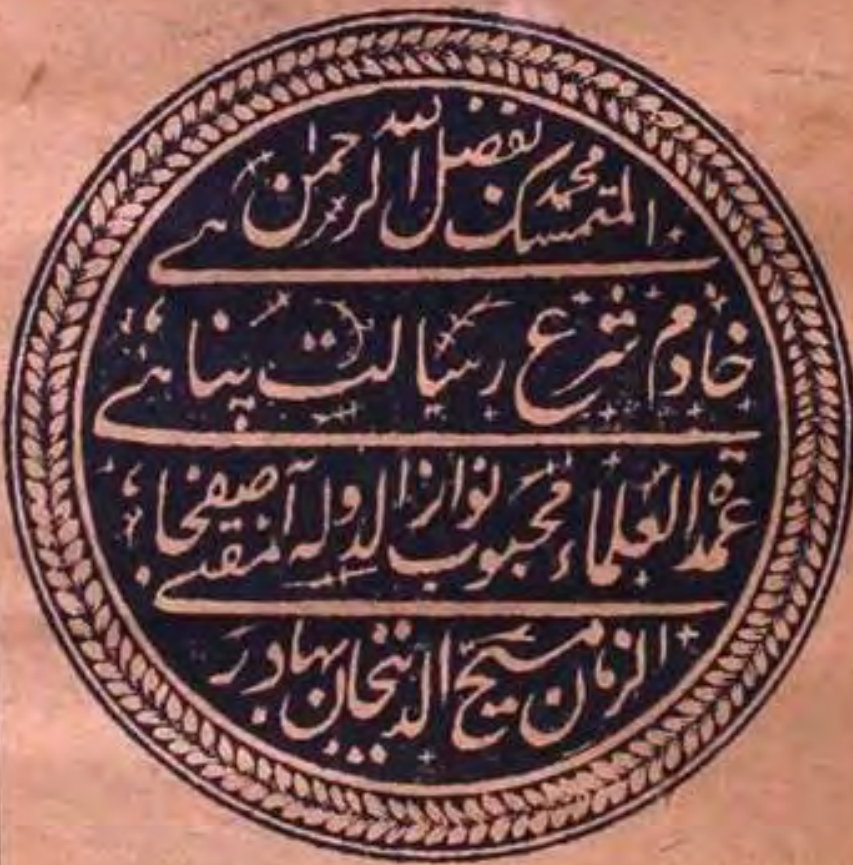 المتمسک بفضل اللہ الرحمن محمد
خادم شرع رسالت پناہی
عمدة العلماء محبوب نواز الدولہ مفتی آصفجاہی
الزمان مسیح الدینخان بہادر